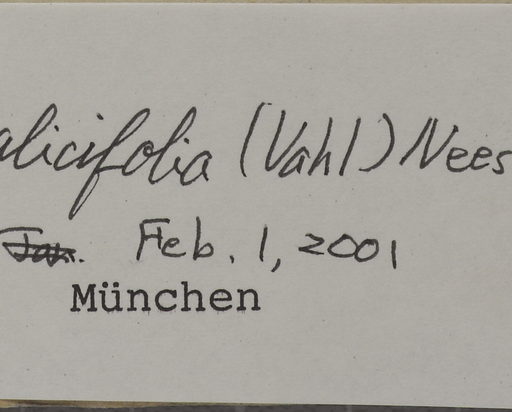 alicifolia (Vahl) Nees
Feb. 1, 2001
München